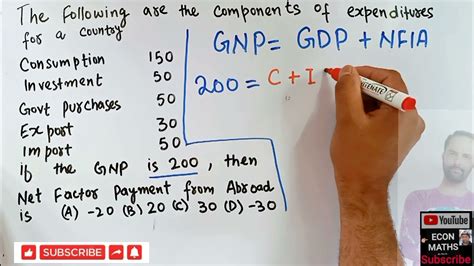 The Following are the components of expenditures
for a country
Consumption 150
Investment 50
Govt purchases 50
Export 30
Import 50
If the GNP is 200, then
Net Factor Payment from Abroad
is (A) -20 (B) 20 (C) 30 (D) -30
GNP = GDP + NFIA
200 = C + I
SUBSCRIBE
YouTube
ECON
MATHS
Subscribe